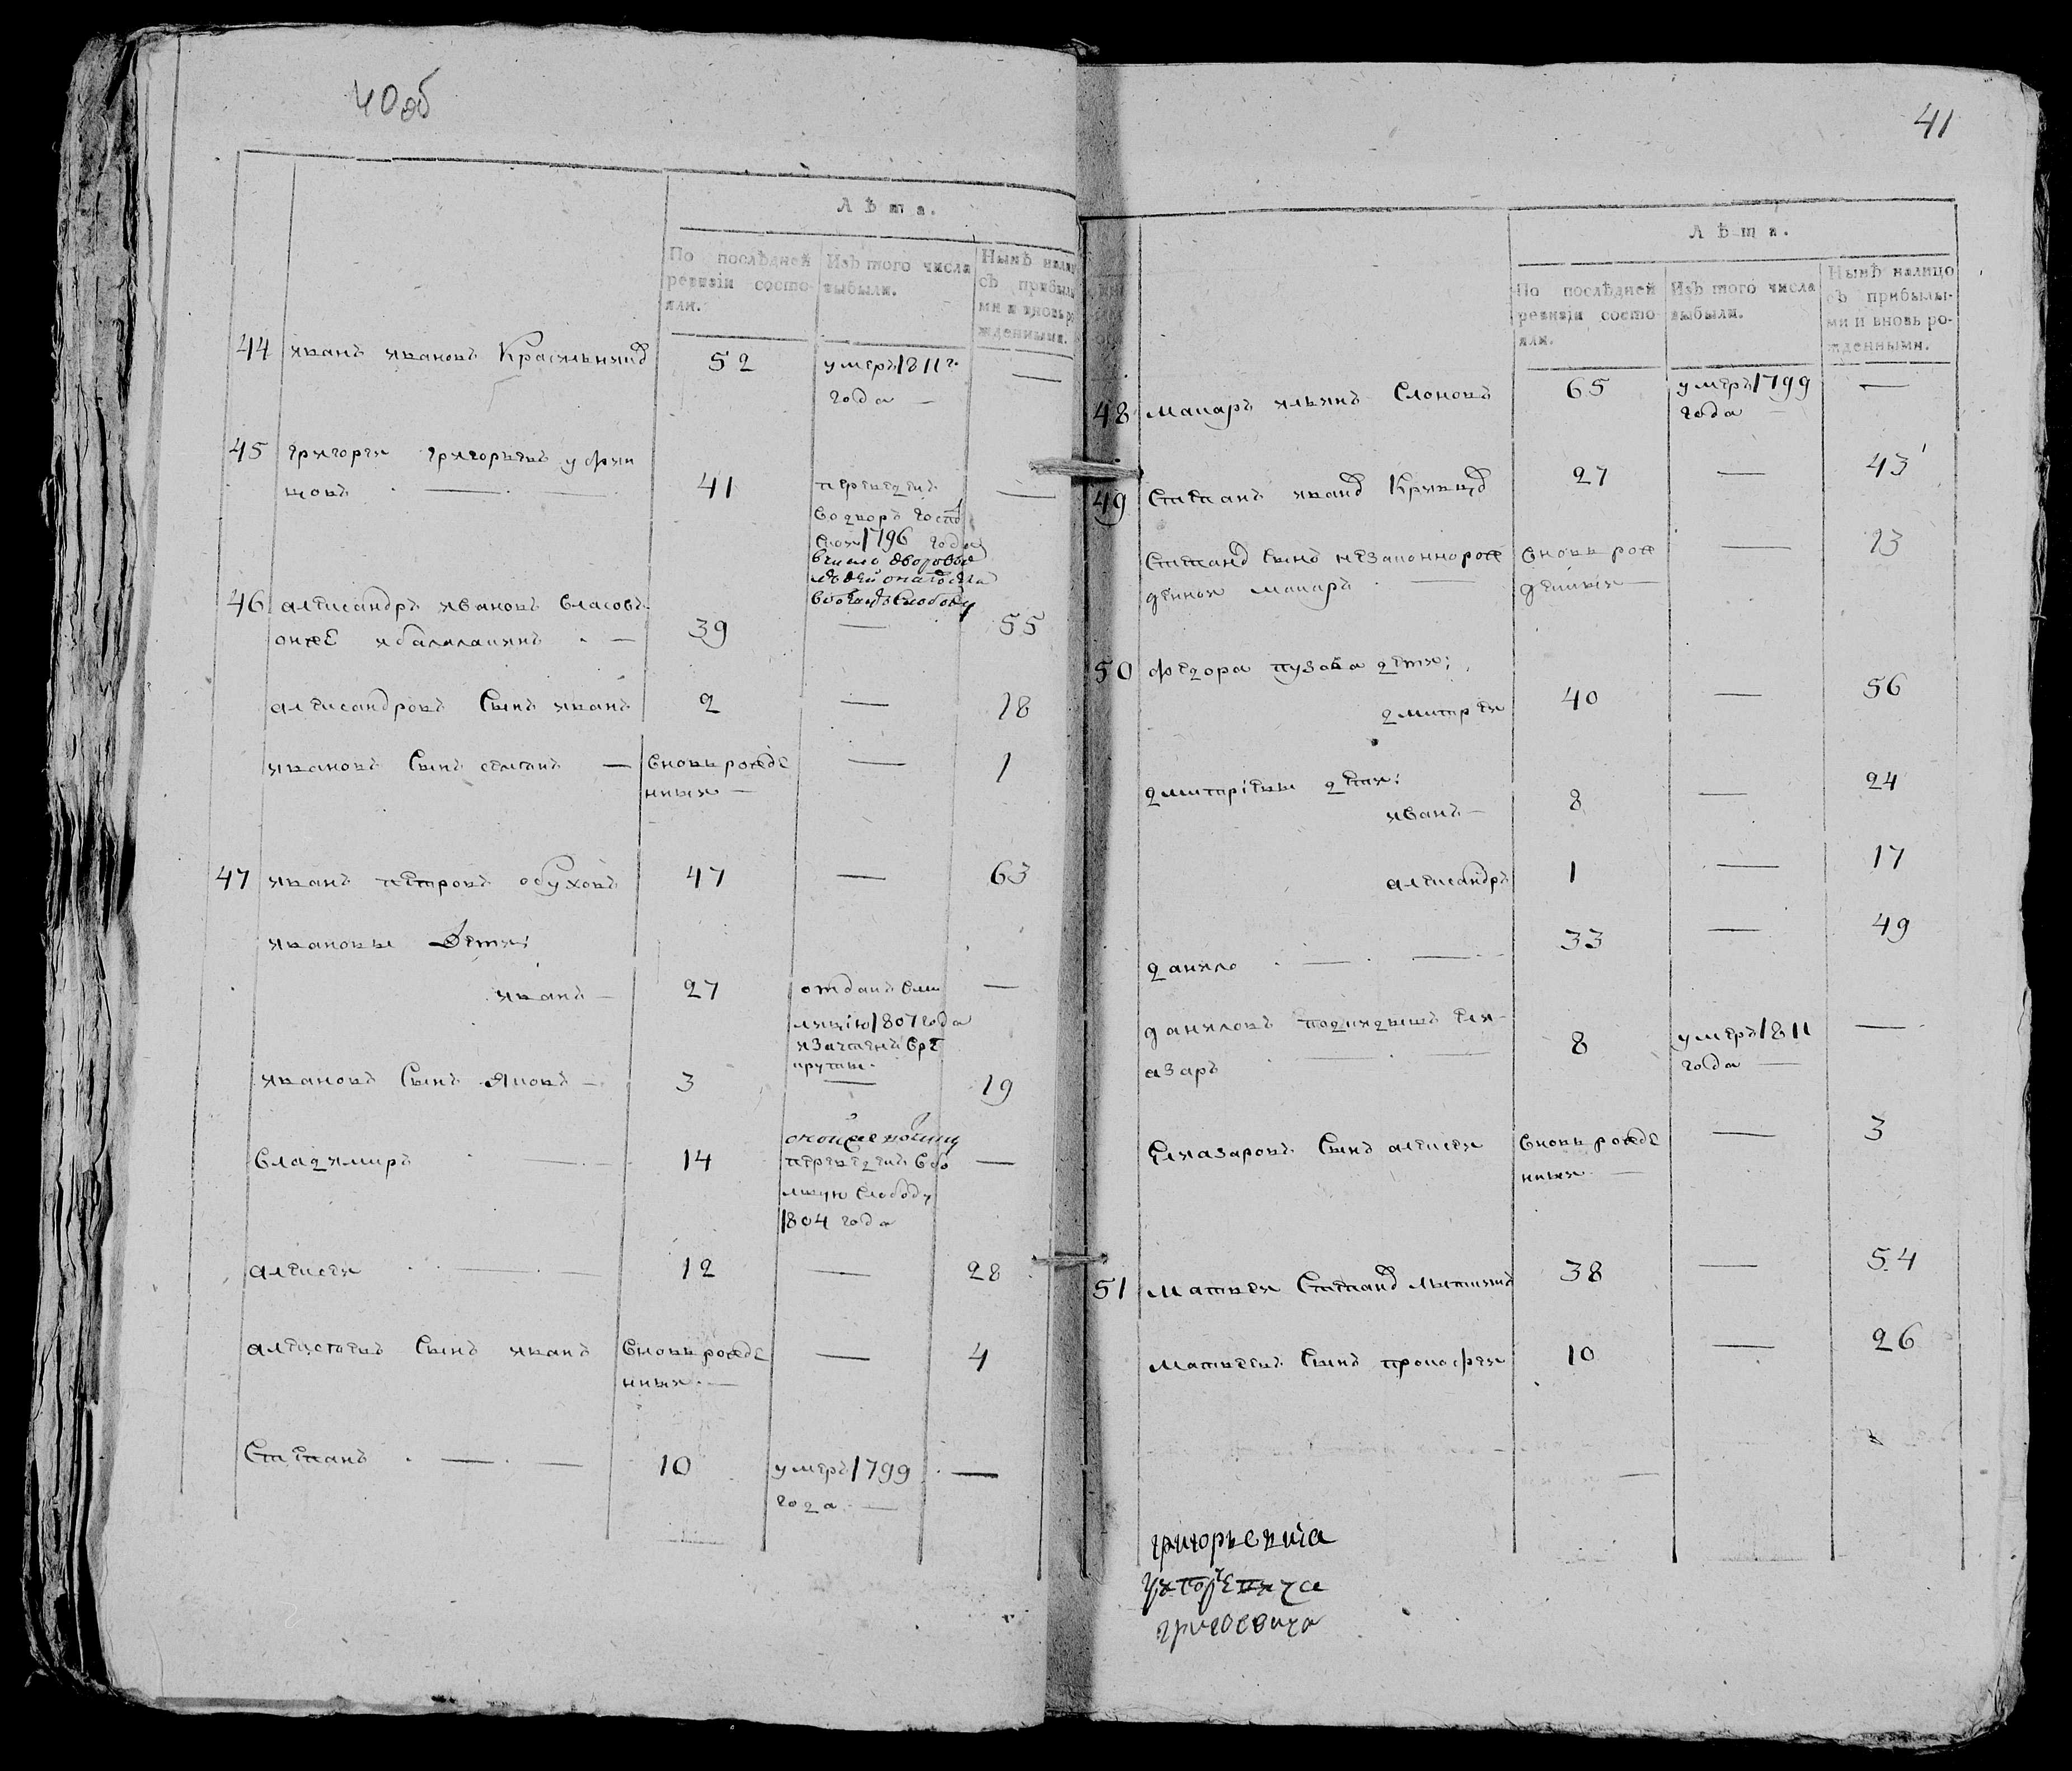 40 об
Лѣта.
По послѣдней ревизіи состояли.
Изъ того числа выбыли.
Нынѣ налицо съ прибылыми и вновь рожденными.
44 иванъ ивановъ Красильник 52 умеръ 1811 г.
года —
45 григореи григорьевъ уфим
цовъ — 41 переведенъ —
во дворъ Госпо
скои 1796 года
вчисло дворовых
людей
слободу
46 александръ ивановъ власовъ
онже ибалалакинъ — 39 — 55
александровъ сынъ иванъ 2 — 18
ивановъ сынъ степанъ — вновь рожде — 1
нныи —
47 иванъ петровъ обуховъ 47 — 63
ивановы дети:
иванъ — 27 отданъ вми —
лицію 1807 года
изачтенъ вре
круты.
ивановъ сынъ яковъ — 3 — 19
владимиръ — 14 —
переведенъ вбо
лшую слободу
1804 года
алексеи — 12 — 28
алексеевъ сынъ иванъ вновь рожде — 4
нныи. —
Степанъ — 10 умеръ 1799 —
года —
41
Лѣта.
По послѣдней ревизіи состояли.
Изъ того числа выбыли.
Нынѣ налицо съ прибылыми и вновь рожденными.
48 макаръ ильинъ Слоновъ 65 умеръ 1799 —
года —
49 Степанъ иванов Кривцов 27 — 43
Степанов сынъ незаконнорож вновь рож — 13
деннои макаръ — денныи —
50 федора пузова дети:
дмитреи 40 — 56
дмитріевы дети:
иванъ — 8 — 24
александръ 1 — 17
данило — 33 — 49
даниловъ подкидышъ ели
азаръ — 8 умеръ 1811 —
года —
Елиазаровъ сынъ алексеи вновь рожде — 3
нныи —
51 матвеи Степанов лыткин 38 — 54
матвеевъ сынъ прокофеи 10 — 26
григорьевича
григоевича